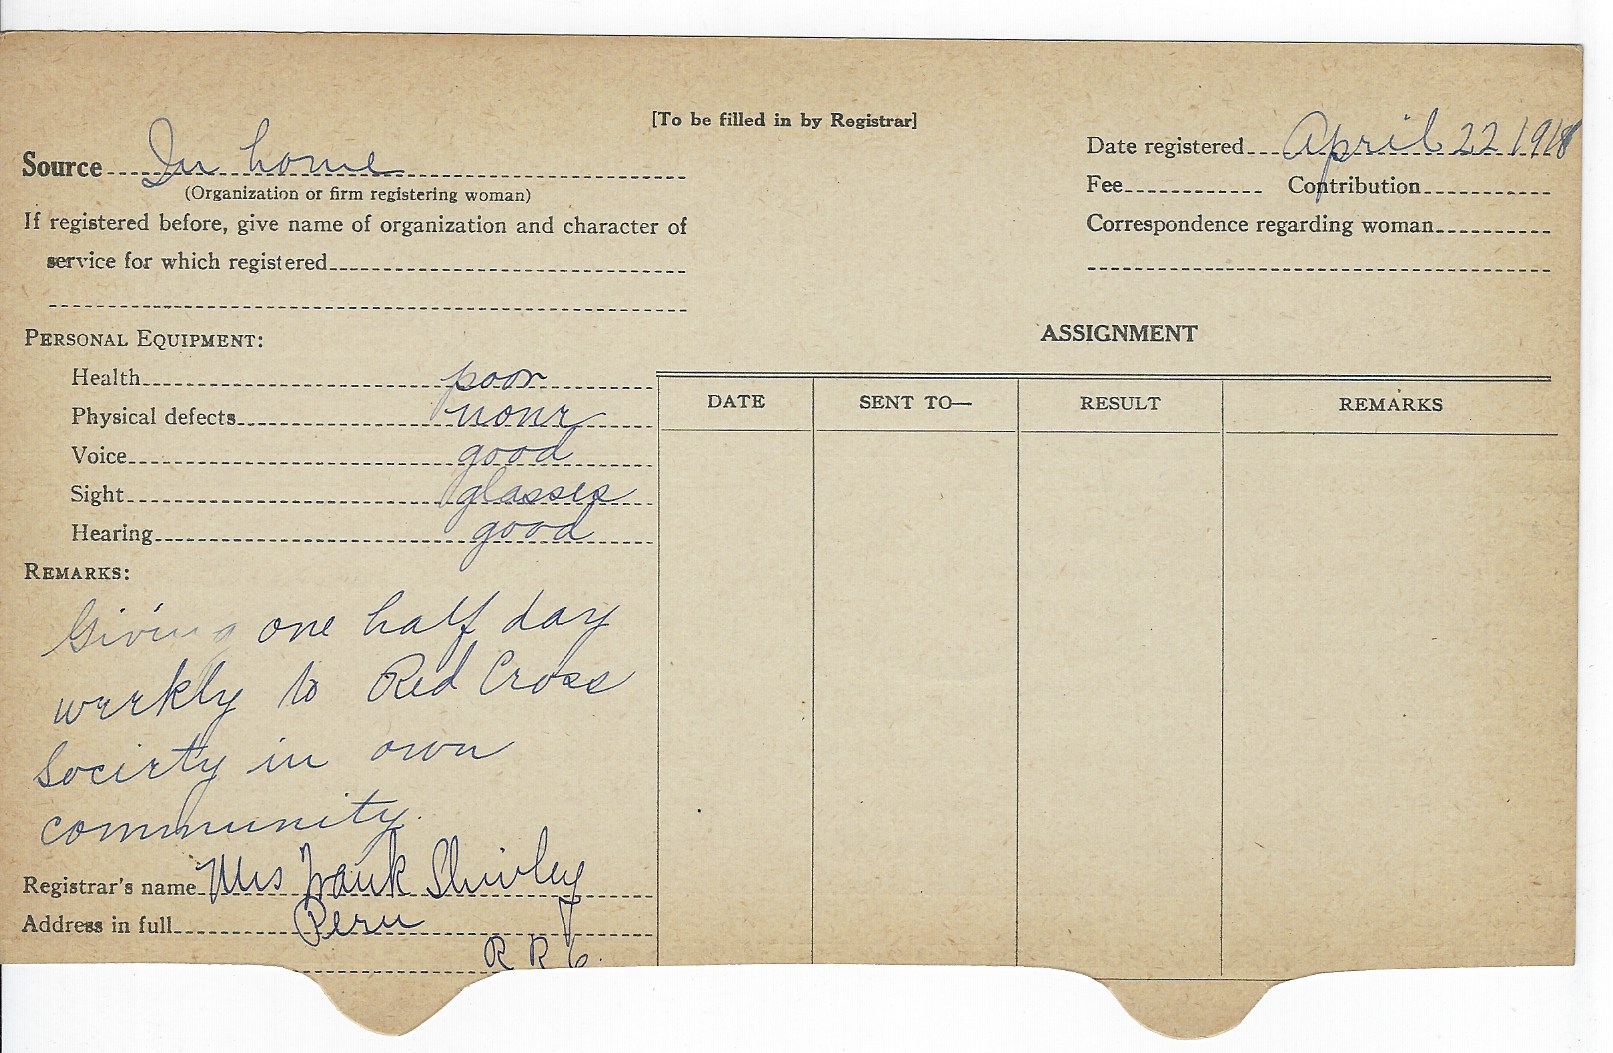 [To be filled in by Registrar]
Source In home
(Organization or firm registering woman)
If registered before, give name of organization and character of
service for which registered
Date registered April 22 1918
Fee Contribution
Correspondence regarding woman
PERSONAL EQUIPMENT:
Health poor
Physical defects none
Voice good
Sight glasses
Hearing good
REMARKS:
Giving one half day
weekly to Red Cross
Society in own
community.
Registrar's name Mrs Frank Shivley
Address in full Peru
R R 6.
ASSIGNMENT
DATE SENT TO— RESULT REMARKS